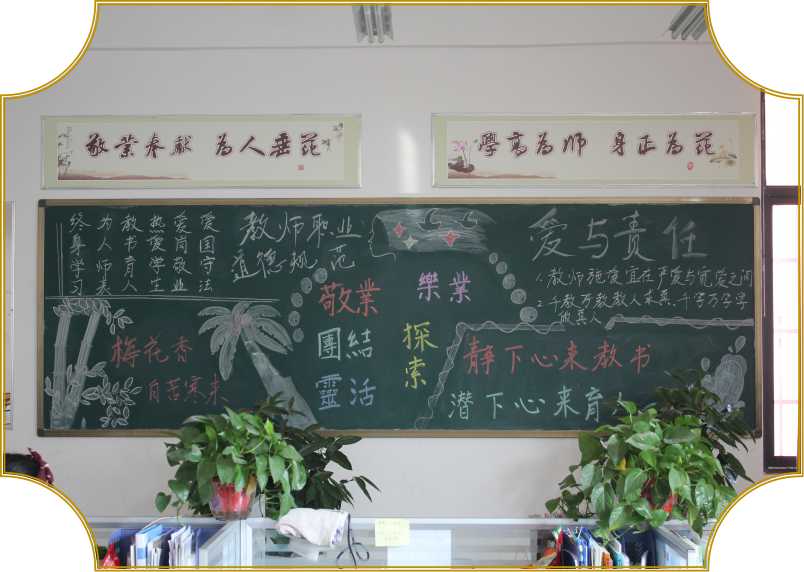 敬業奉献 為人垂范
學高為师 身正為范
教师职业
道德规范
爱国守法
爱岗敬业
热爱学生
教书育人
为人师表
终身学习
爱与责任
1. 教师施爱宜在严爱与宽爱之间
2. 千教万教教人求真、千学万学学
做真人
敬業
團結
靈活
樂業
探索
梅花香
自苦寒来
静下心来教书
潜下心来育